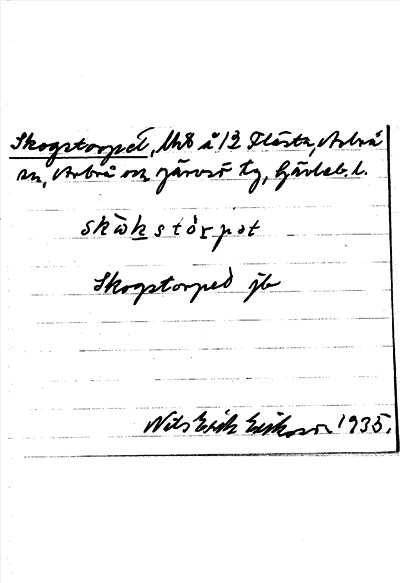 Skogstorpet, 1/48 å 12 Flästa, Arbrå
sn, Arbrå och Järvsö tg, Gävleb. l.
skɷkstɷrpət
Skogstorped jb
Nils Erik Eriksson 1935.